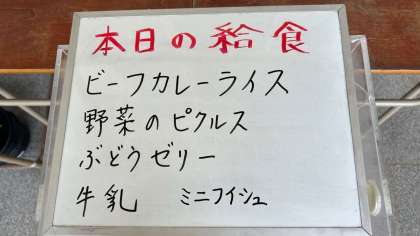 本日の給食
ビーフカレーライス
野菜のピクルス
ぶどうゼリー
牛乳 ミニフィシュ